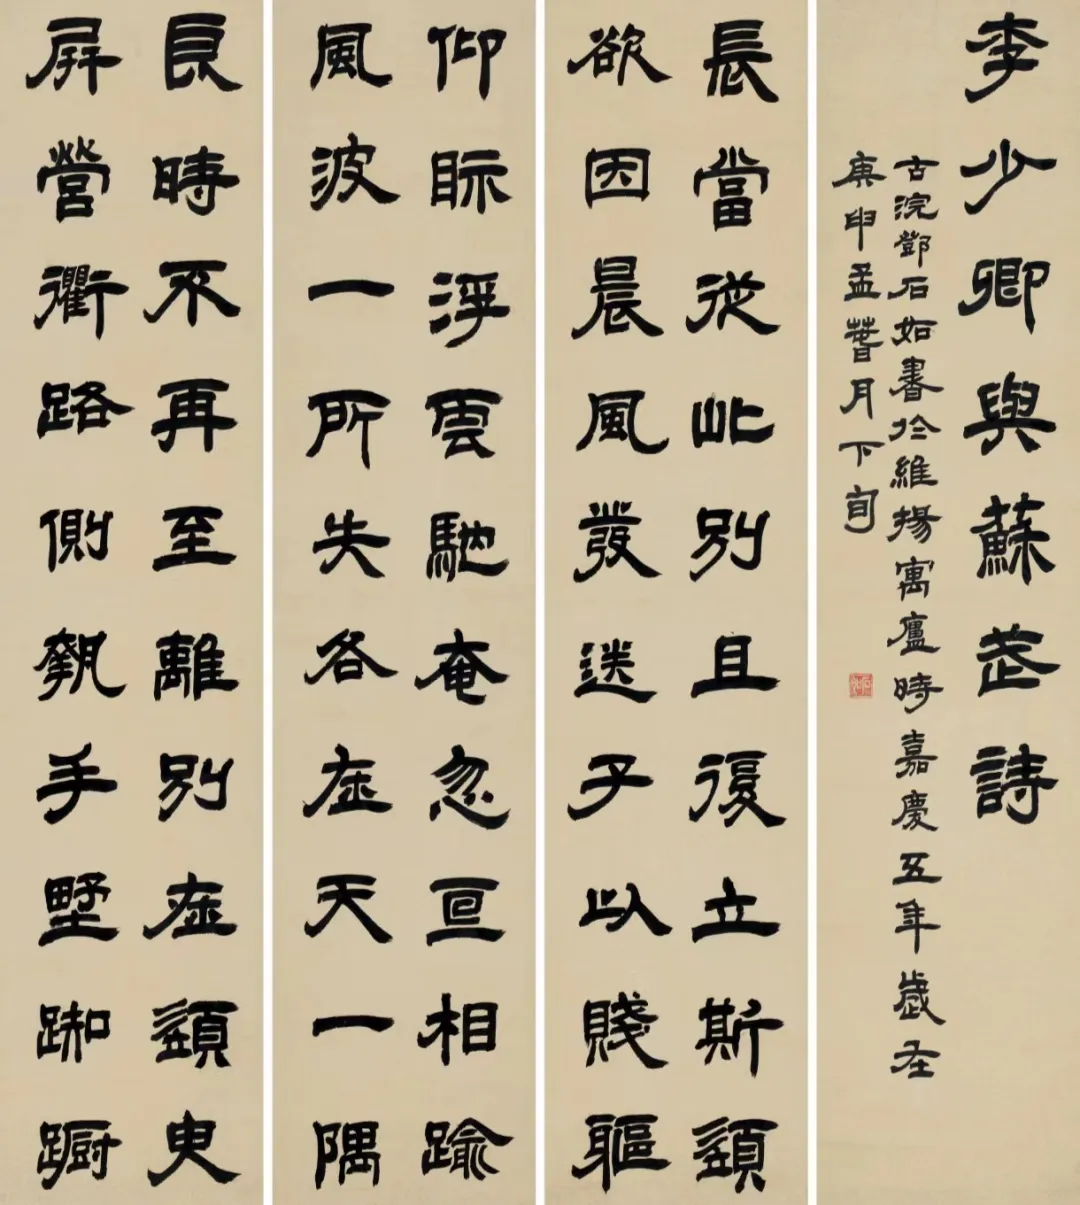 良時不再至離別在須臾
屏營衢路側執手墅踟蹰
仰眎浮雲馳奄忽互相踰
風波一所失各在天一隅
長當從此別且復立斯須
欲因晨風發送子以賤軀
李少卿與蘇武詩
古浣鄧石如書於維揚寓廬時嘉慶五年歲在
庚申孟萅月下旬